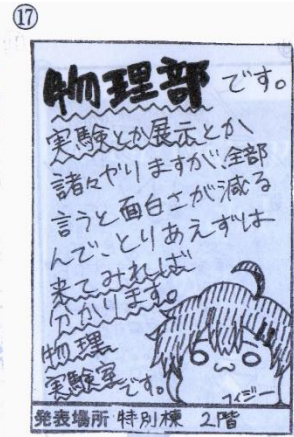 ⑰
物理部です。
実験とか展示とか
諸々やりますが、全部
言うと面白さが減る
んで、とりあえずは
来てみれば
分かります。
物理
実験室です。
フィジー
発表場所 特別棟 2階